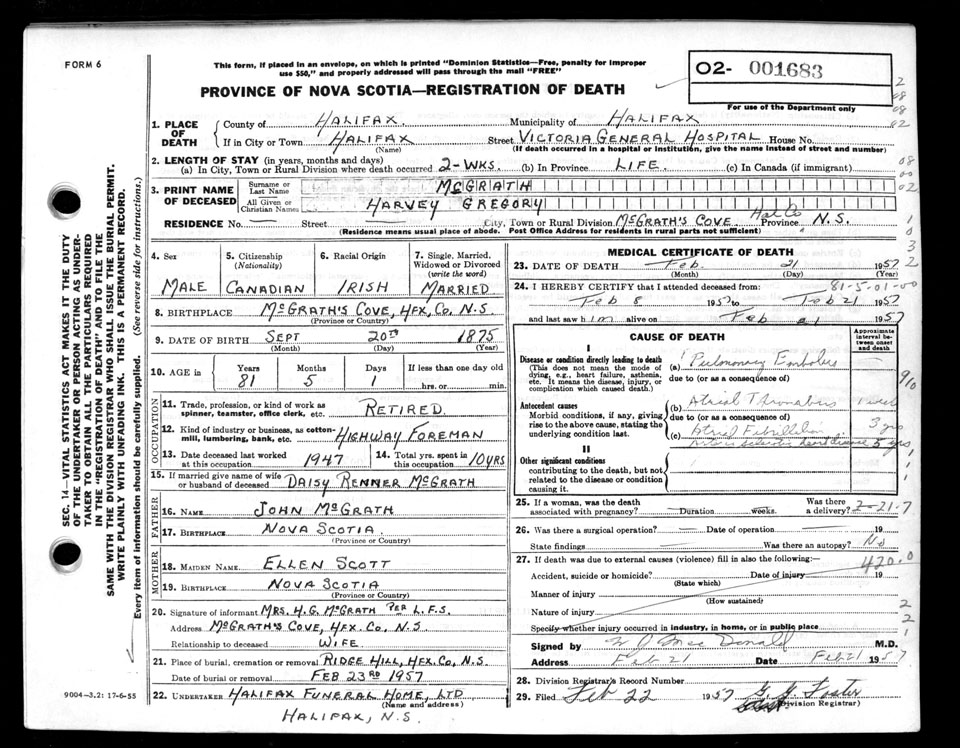 FORM 6
This form, if placed in an envelope, on which is printed "Dominion Statistics—Free, penalty for improper
use $50," and properly addressed will pass through the mail "FREE"
O2- 001683
PROVINCE OF NOVA SCOTIA—REGISTRATION OF DEATH
For use of the Department only
2
08
08
02
1. PLACE OF DEATH
County of HALIFAX Municipality of HALIFAX
If in City or Town HALIFAX Street VICTORIA GENERAL HOSPITAL House No.
(Name) (If death occurred in a hospital or institution, give the name instead of street and number)
2. LENGTH OF STAY (in years, months and days)
(a) In City, Town or Rural Division where death occurred 2-WKS. (b) In Province LIFE. (c) In Canada (if immigrant)
08
00
02
3. PRINT NAME OF DECEASED
Surname or Last Name MCGRATH
All Given or Christian Names HARVEY GREGORY
RESIDENCE No. — Street — City, Town or Rural Division MCGRATH'S COVE Hal Co Province N.S.
(Residence means usual place of abode. Post Office Address for residents in rural parts not sufficient)
1
0
3
2
4. Sex
MALE
5. Citizenship
(Nationality)
CANADIAN
6. Racial Origin
IRISH
7. Single, Married,
Widowed or Divorced
(write the word)
MARRIED
8. BIRTHPLACE MCGRATH'S COVE, HFX, CO, N.S.
(Province or Country)
9. DATE OF BIRTH SEPT 20TH 1875
(Month) (Day) (Year)
10. AGE in
Years Months Days If less than one day old
81 5 1 hrs. or min.
OCCUPATION
11. Trade, profession, or kind of work as
spinner, teamster, office clerk, etc. RETIRED.
12. Kind of industry or business, as cotton-
mill, lumbering, bank, etc. HIGHWAY FOREMAN
13. Date deceased last worked
at this occupation 1947
14. Total yrs. spent in
this occupation 10 YRS
15. If married give name of wife
or husband of deceased DAISY RENNER MCGRATH
FATHER
16. NAME JOHN MCGRATH
17. BIRTHPLACE NOVA SCOTIA
(Province or Country)
MOTHER
18. MAIDEN NAME ELLEN SCOTT
19. BIRTHPLACE NOVA SCOTIA
(Province or Country)
20. Signature of informant MRS. H.G. MCGRATH PER L.F.S.
Address MCGRATH'S COVE, HFX. CO, N.S
Relationship to deceased WIFE
21. Place of burial, cremation or removal RIDGE HILL, HFX. CO, N.S
FEB 23RD 1957
22. UNDERTAKER HALIFAX FUNERAL HOME, LTD
(Name and address)
HALIFAX, N.S.
MEDICAL CERTIFICATE OF DEATH
23. DATE OF DEATH Feb. 21 1957
(Month) (Day) (Year)
24. I HEREBY CERTIFY that I attended deceased from: 81-5-01-00
Feb 8 1957 to Feb 21 1957
and last saw him alive on Feb 21 1957
CAUSE OF DEATH
Approximate
interval be-
tween onset
and death
I
Disease or condition directly leading to death
(This does not mean the mode of
dying, e.g., heart failure, asthenia,
etc. It means the disease, injury, or
complication which caused death.)
(a) Pulmonary Embolus
due to (or as a consequence of)
Antecedent causes
Morbid conditions, if any, giving
rise to the above cause, stating the
underlying condition last.
(b) Atrial Thrombus 1 week
due to (or as a consequence of)
(c) Atrial Fibrillation 3 yrs
heart disease 5 yrs
II
Other significant conditions
contributing to the death, but not
related to the disease or condition
causing it.
25. If a woman, was the death
associated with pregnancy? Duration weeks.
Was there
a delivery? 2-21-7
26. Was there a surgical operation? — Date of operation — 19
State findings Was there an autopsy? No
27. If death was due to external causes (violence) fill in also the following:— 420.0
Accident, suicide or homicide? Date of injury 19
(State which)
Manner of injury
(How sustained)
Nature of injury
Specify whether injury occurred in industry, in home, or in public place
2
2
1
Signed by W J MacDonald M.D.
Address Feb 21 Date Feb 21 1957
28. Division Registrar's Record Number
29. Filed Feb 22 1957 G. G. Foster
Division Registrar)
SEC. 14—VITAL STATISTICS ACT MAKES IT THE DUTY
OF THE UNDERTAKER OR PERSON ACTING AS UNDER-
TAKER TO OBTAIN ALL THE PARTICULARS REQUIRED
IN THE "REGISTRATION OF DEATH" AND TO FILE THE
SAME WITH THE DIVISION REGISTRAR WHO SHALL ISSUE THE BURIAL PERMIT.
WRITE PLAINLY WITH UNFADING INK. THIS IS A PERMANENT RECORD.
Every item of information should be carefully supplied. (See reverse side for instructions.)
9004-3.2: 17-6-55